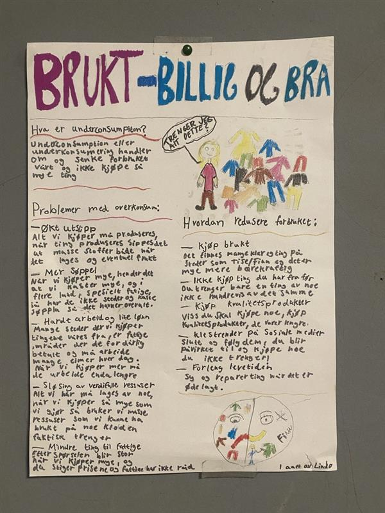 BRUKT-BILLIG OG BRA
Hva er underconsumption?
Underconsumption eller
underkonsumering handler
om og senke forbruket
vårt og ikke kjøpe så
mye ting
TRENGER JEG
ALT DETTE?
Problemer med overkonsum:
— Økt utslipp
Alt vi kjøper må produseres,
når ting produseres slippes det
ut masse stoffer både når
det lages og eventuelt frakt
— Mer Søppel
Når vi kjøper mye, hender det
at vi kaster mye, og i
flere land, spesielt fattige,
så har de ikke steder og kaste
søppla så det havner
— Hardt arbeid og lite lønn
Mange steder der vi kjøper
tingene våres fra er fattige
områder der de får dårlig
betalt og må arbeide
mange timer hver dag.
Når vi kjøper mer må
de arbeide enda lengre
— Sløsing av verdifulle ressuser
Alt vi har må lages av noe,
når vi kjøper så mye som
vi gjør så bruker vi masse
ressuser som vi kunne ha
bruke på noe kloden
faktisk trenger
— Mindre ting til fattige
Etter spørselen blir stor
når vi kjøper mye, og
da stiger prisene og fattige har ikke råd
Hvordan redusere forbruket:
— Kjøp brukt
Det finnes mange klær og ting på
steder som Tise/Finn og det er
mye mere bærekraftig
— Ikke kjøp ting du har fra før
Du trenger bare en ting av noe
ikke hundrevis av det samme
— Kjøp kvalitetsprodukter
Viss du skal kjøpe noe, kjøp
kvalitetsprodukter, de varer lengre.
— Klestrender på Sosiale medier
Slutt og følg dem, du blir
påvirket til og kjøpe noe
du ikke trenger!
— Forleng levetiden
Sy og reparer ting når det er
ødelagt.
Finn
Laget av: Linde